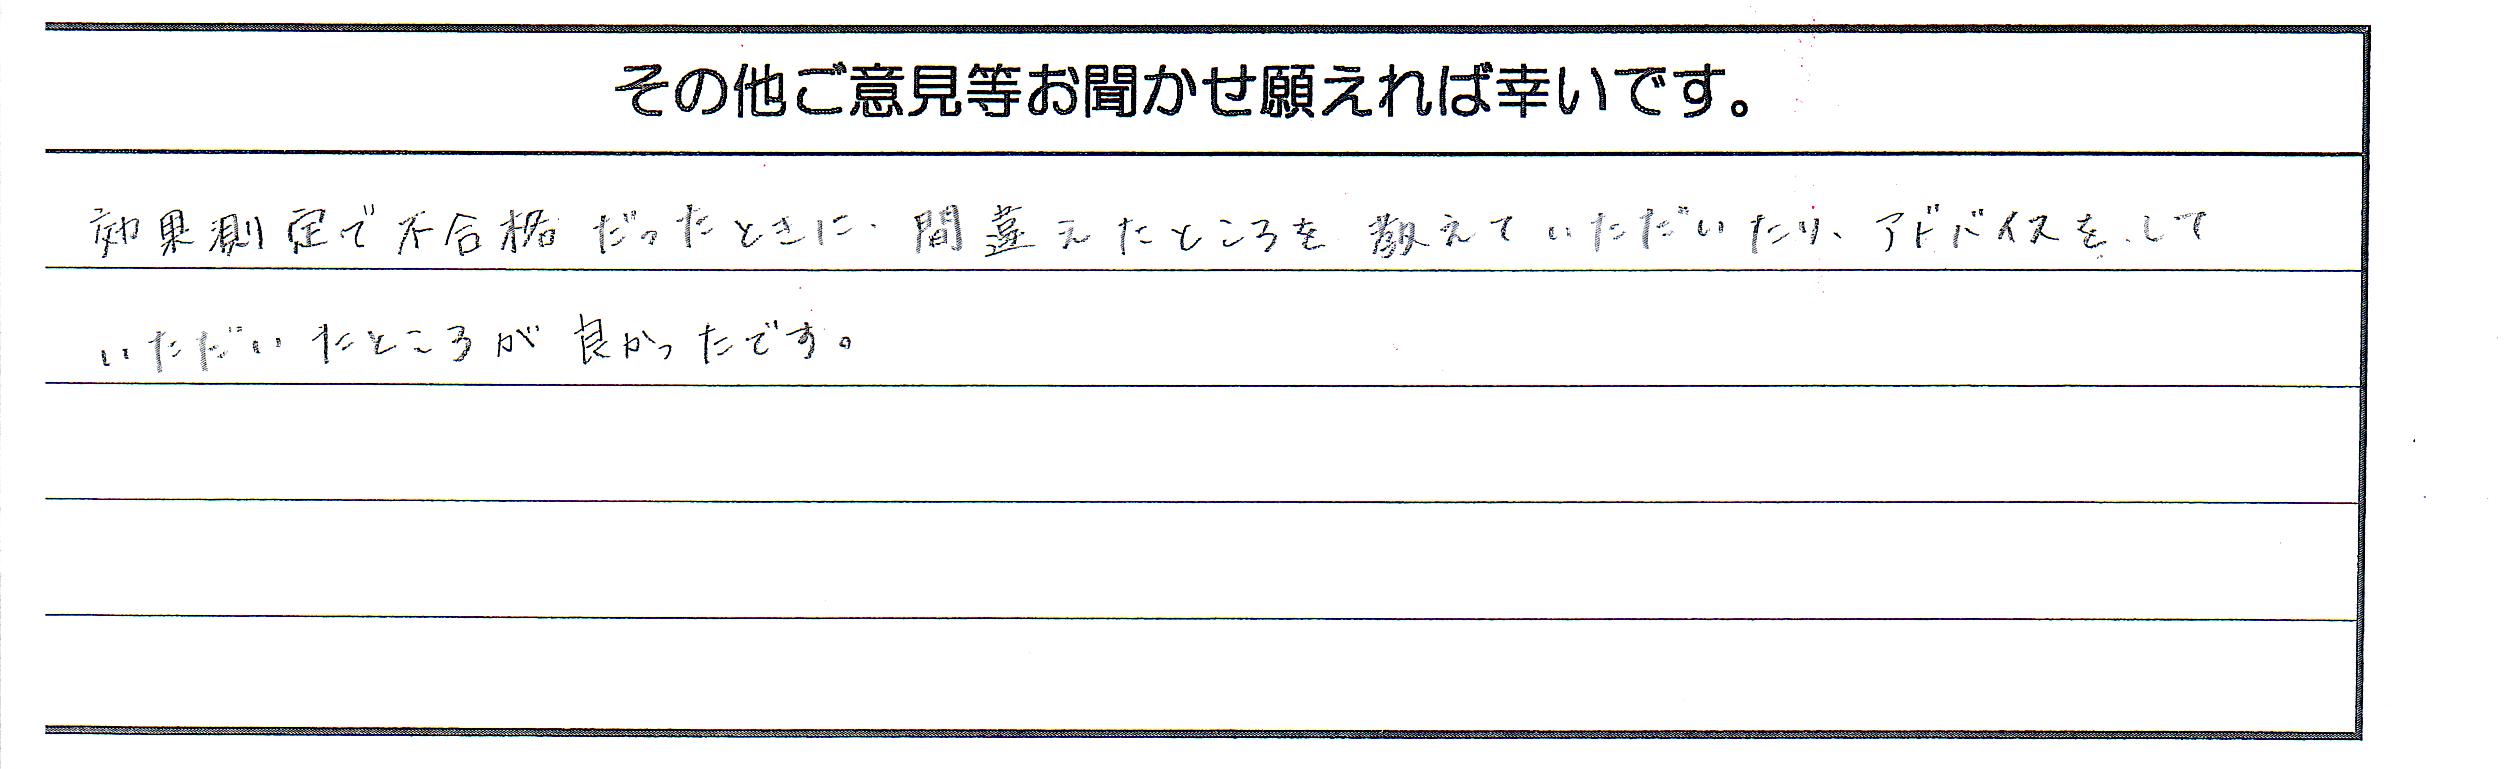 その他ご意見等お聞かせ願えれば幸いです。
効果測定で不合格だったときに、間違えたところを教えていただいたり、アドバイスをして
いただいたところが良かったです。